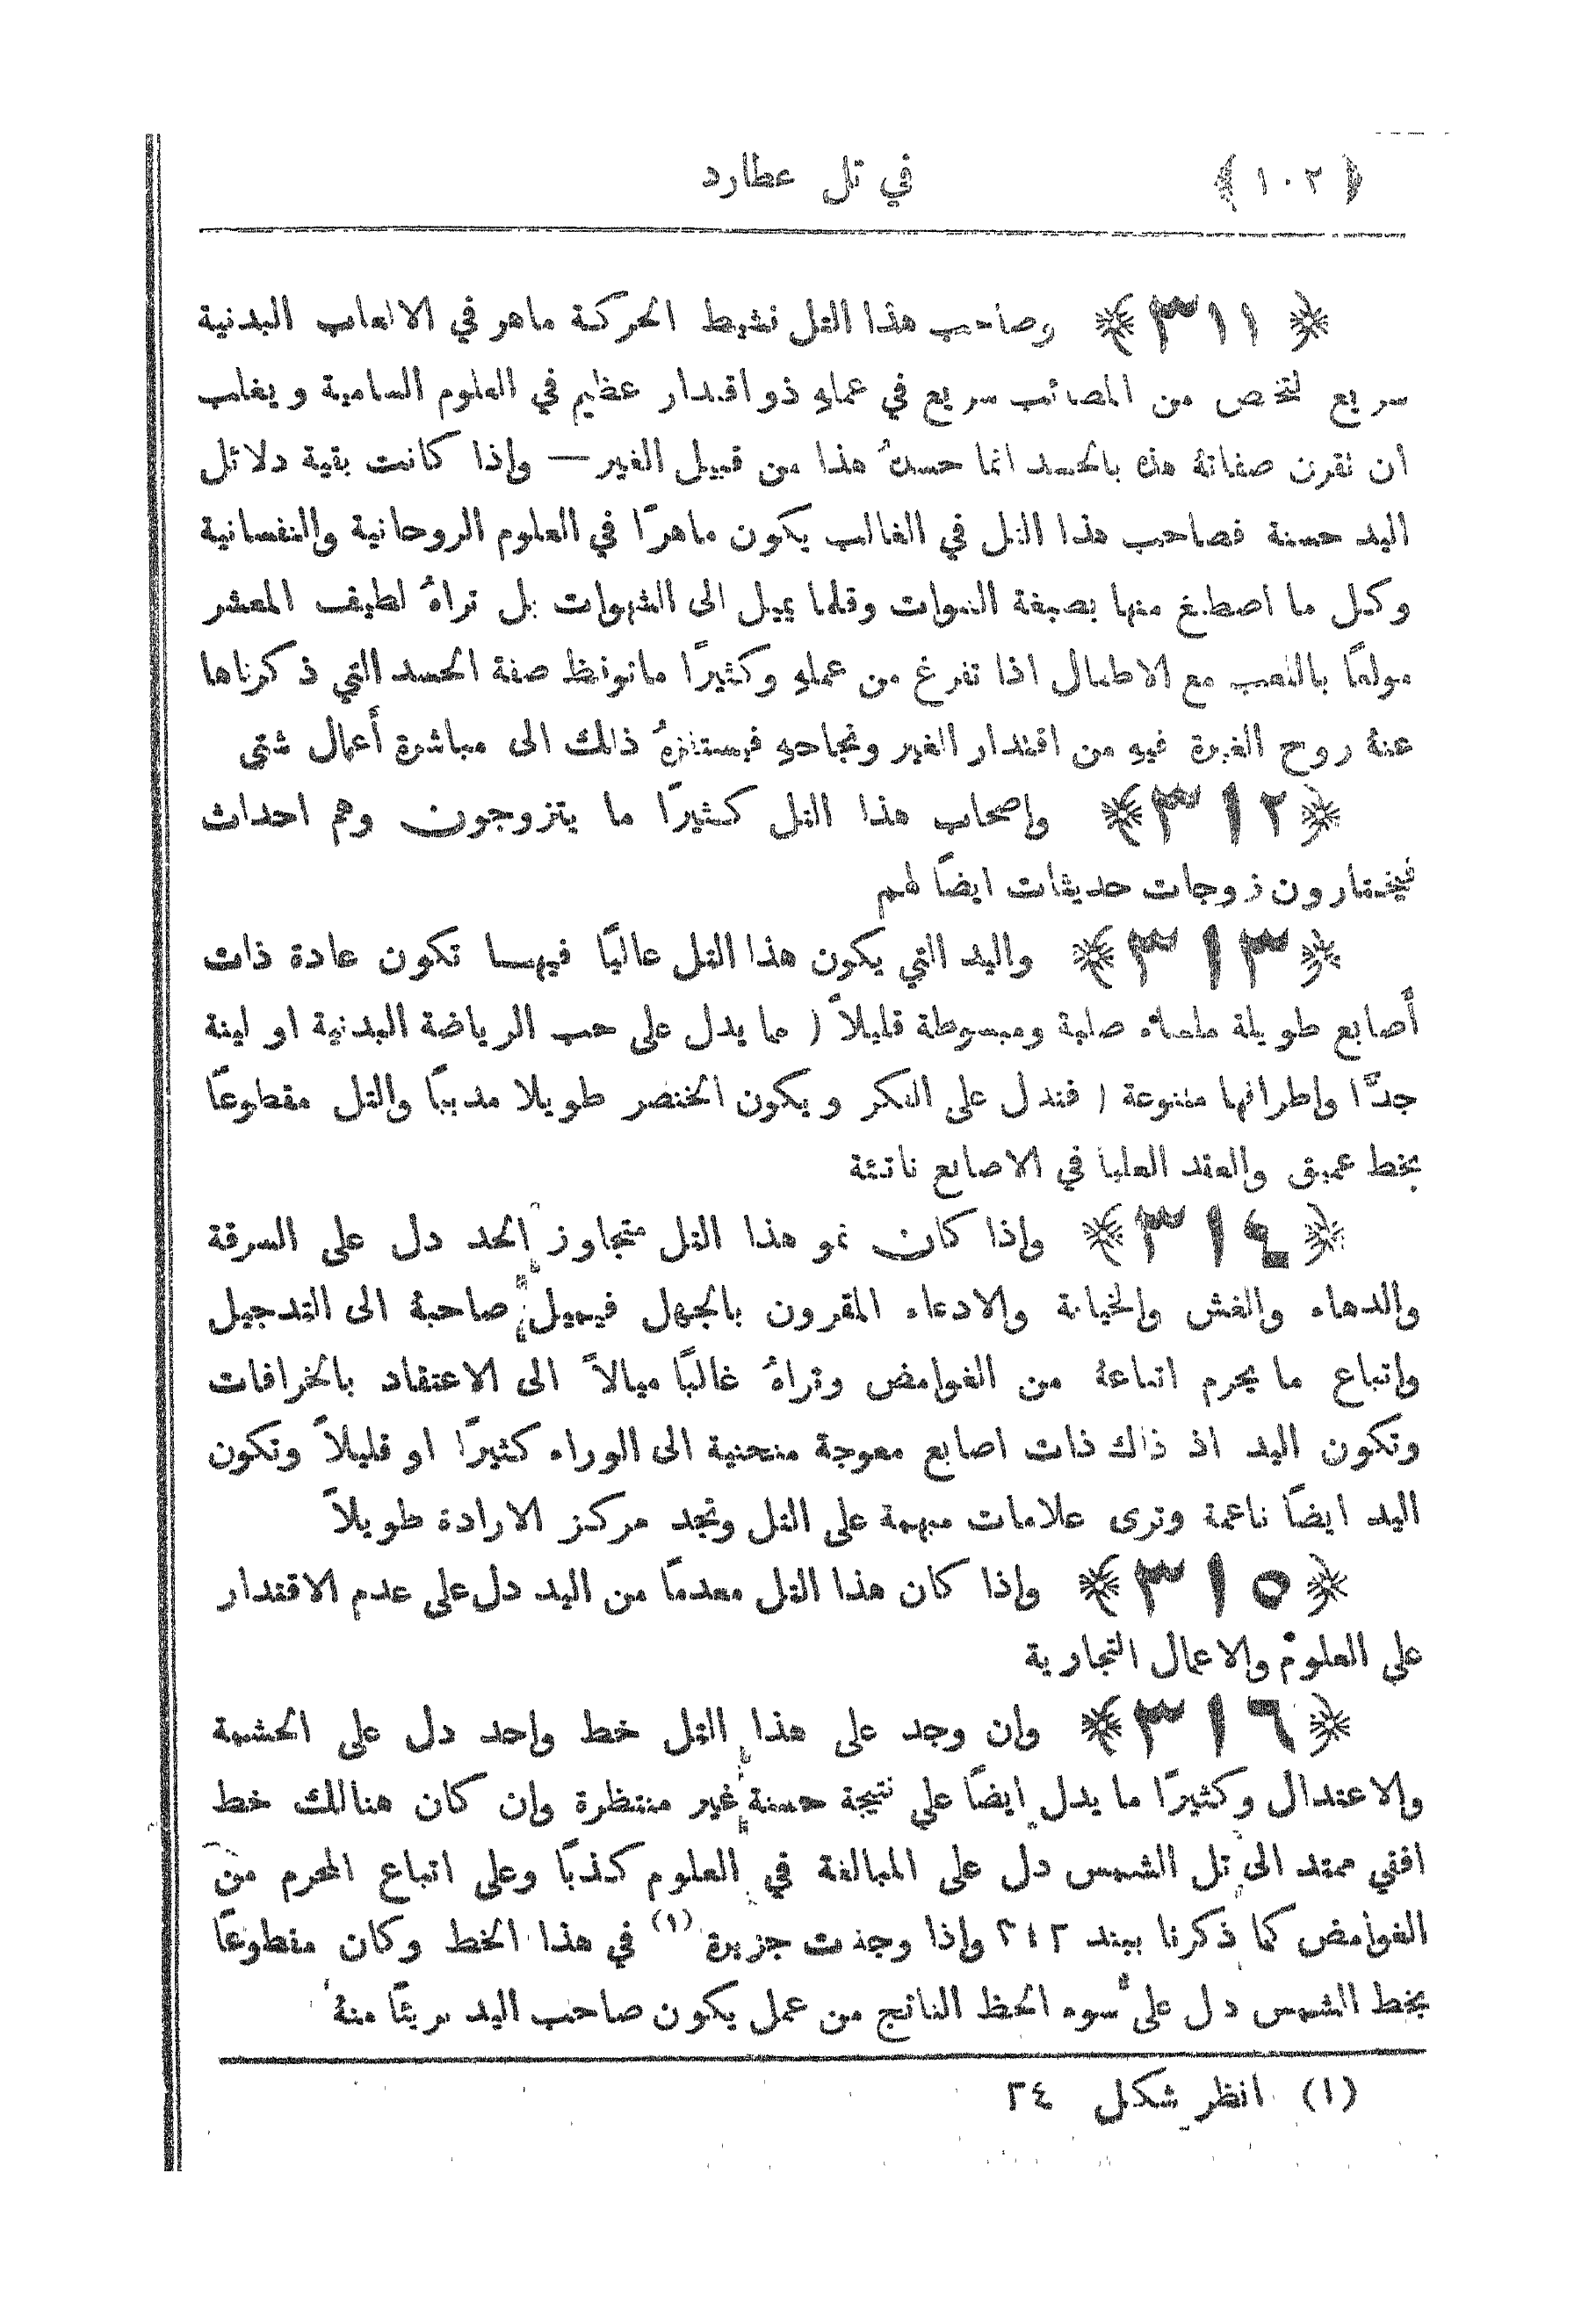 ﴿ ١٠٢ ﴾ في تل عطارد
﴿ ٣١١ ﴾ وصاحب هذا التل نشيط الحركة ماهر في الالعاب البدنية
سريع لتخص من المصائب سريع في عمله ذو اقدار عظيم في العلوم السامية ويغلب
ان نقرن صفاتهُ هذه بالحسد انما حسدهُ هذا من قبيل الغير — وإذا كانت بقية دلائل
اليد حسنة فصاحب هذا التل في الغالب يكون ماهرًا في العلوم الروحانية والنفسانية
وكل ما اصطبغ منها بصبغة النبوات وقلما يميل الى الشهوات بل تراهُ لطيف المعشر
مولعًا بالنعب مع الاطفال اذا تفرغ من عمله وكثيرًا مانوقظ صفة الحسد التي ذكرناها
عنهُ روح الغيرة فيه من اقتدار الغير ونجاحه فيستفزهُ ذلك الى مباشرة أعمال شتى
﴿ ٣١٢ ﴾ وإصحاب هذا التل كثيرًا ما يتزوجون وهم احداث
فيختارون زوجات حديثات ايضًا لهم
﴿ ٣١٣ ﴾ واليد التي يكون هذا التل عاليًا فيها تكون عادة ذات
أصابع طويلة ملساء صلبة ومبسوطة قليلاً ( مما يدل على حب الرياضة البدنية او لينة
جدًّا وإطرافها متنوعة ( فتدل على الفكر ويكون الخنصر طويلا مدببًا والتل مقطوعًا
بخط عميق والعقد العليا في الاصابع ناتئة
﴿ ٣١٤ ﴾ وإذا كان نمو هذا التل متجاوز الحد دل على السرقة
والدهاء والغش والخيانة والادعاء المقرون بالجهل فيميل صاحبهُ الى التدجيل
وإتباع ما يحرم اتباعهُ من الغوامض وتراهُ غالبًا ميالاً الى الاعتقاد بالخرافات
وتكون اليد اذ ذاك ذات اصابع معوجة منحنية الى الوراء كثيرًا او قليلاً وتكون
اليد ايضًا ناعمة وترى علامات مبهمة على التل وتجد مركز الارادة طويلاً
﴿ ٣١٥ ﴾ وإذا كان هذا التل معدمًا من اليد دل على عدم الاقتدار
على العلوم والاعمال التجارية
﴿ ٣١٦ ﴾ وان وجد على هذا التل خط واحد دل على الحشمة
والاعتدال وكثيرًا ما يدل ايضًا علي نتيجة حسنة غير منتظرة وإن كان هنالك خط
افقي ممتد الى تل الشمس دل على المبالغة في العلوم كذبًا وعلى اتباع المحرم من
الغوامض كما ذكرنا ببند ٢٤٢ وإذا وجدت جزيرة (١) في هذا الخط وكان مقطوعًا
بخط الشمس دل على سوء الحظ الناتج من عمل يكون صاحب اليد بريئًا منهُ
(١) انظر شكل ٢٤